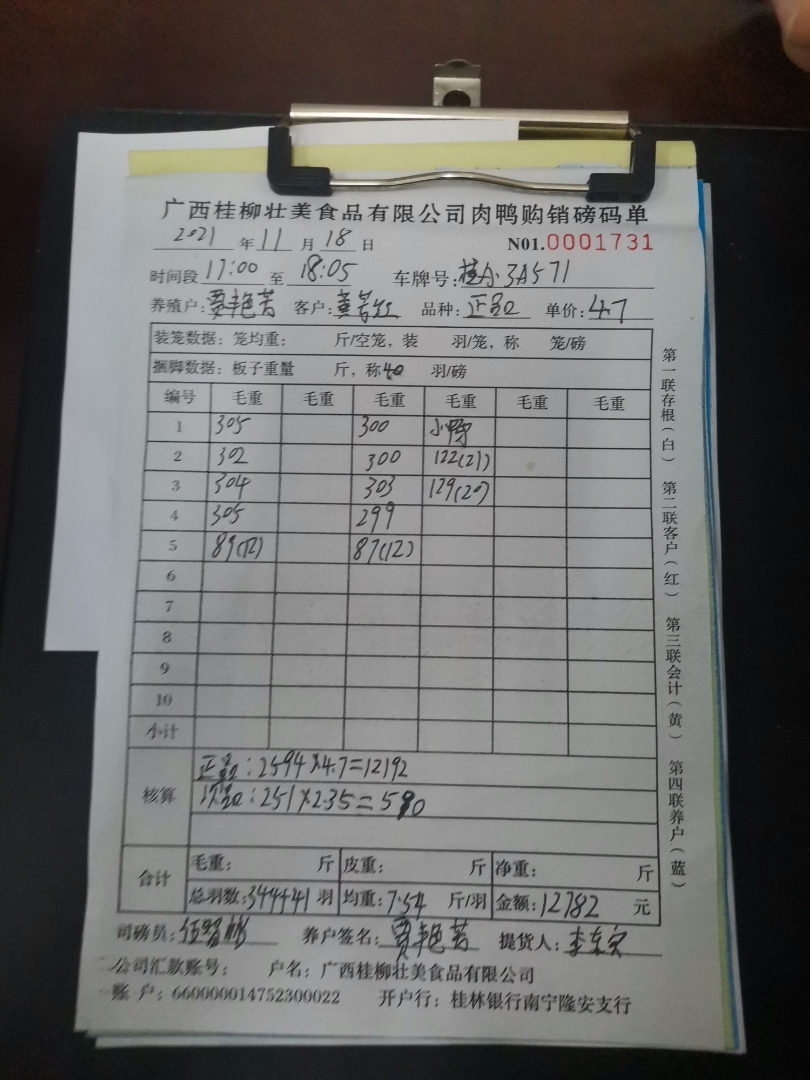 广西桂柳壮美食品有限公司肉鸭购销磅码单
2021 年 11 月 18 日 N01.0001731
时间段 17:00 至 18:05 车牌号: 3A571
养殖户: 贾艳芳 客户: 品种: 正品 单价: 4.7
装笼数据: 笼均重: 斤/空笼, 装 羽/笼, 称 笼/磅
捆脚数据: 板子重量 斤, 称40 羽/磅
编号 毛重 毛重 毛重 毛重 毛重 毛重
1 305 300 小鸭
2 302 300 122(21)
3 304 303 129(20)
4 305 299
5 89(12) 87(12)
6
7
8
9
10
小计
核算
正品: 2594×4.7=12192
次品: 251×2.35=590
合计
毛重: 斤 皮重: 斤 净重: 斤
总羽数: 344+41 羽 均重: 7.54 斤/羽 金额: 12782 元
司磅员: 养户签名: 贾艳芳 提货人:
公司汇款账号: 户名: 广西桂柳壮美食品有限公司
账 户: 660000014752300022 开户行: 桂林银行南宁隆安支行
第一联存根(白) 第二联客户(红) 第三联会计(黄) 第四联养户(蓝)